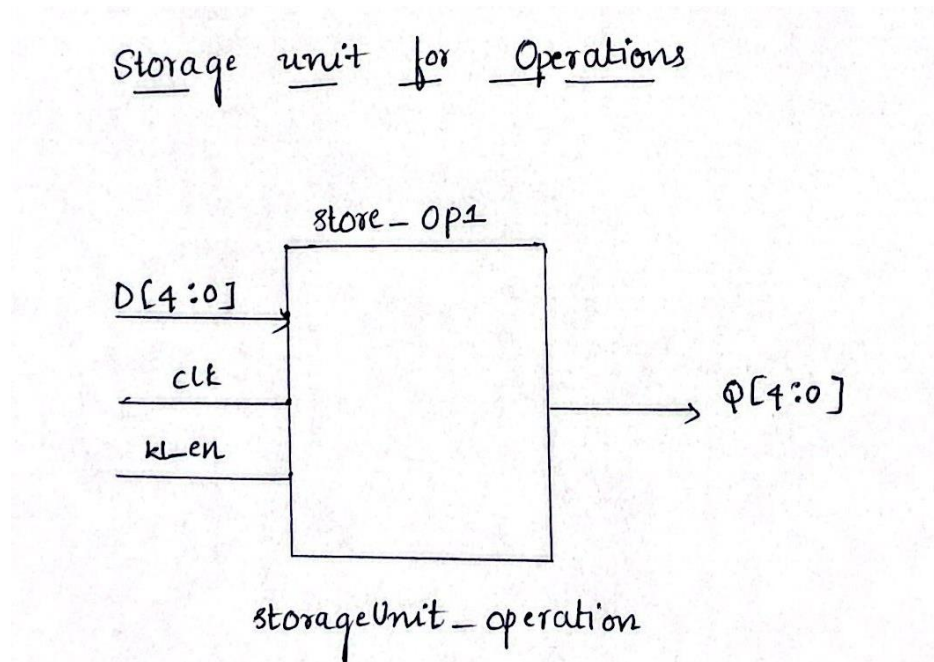 Storage unit for Operations
store_Op1
D[4:0]
clk
Q[4:0]
kl_en
storageUnit_operation